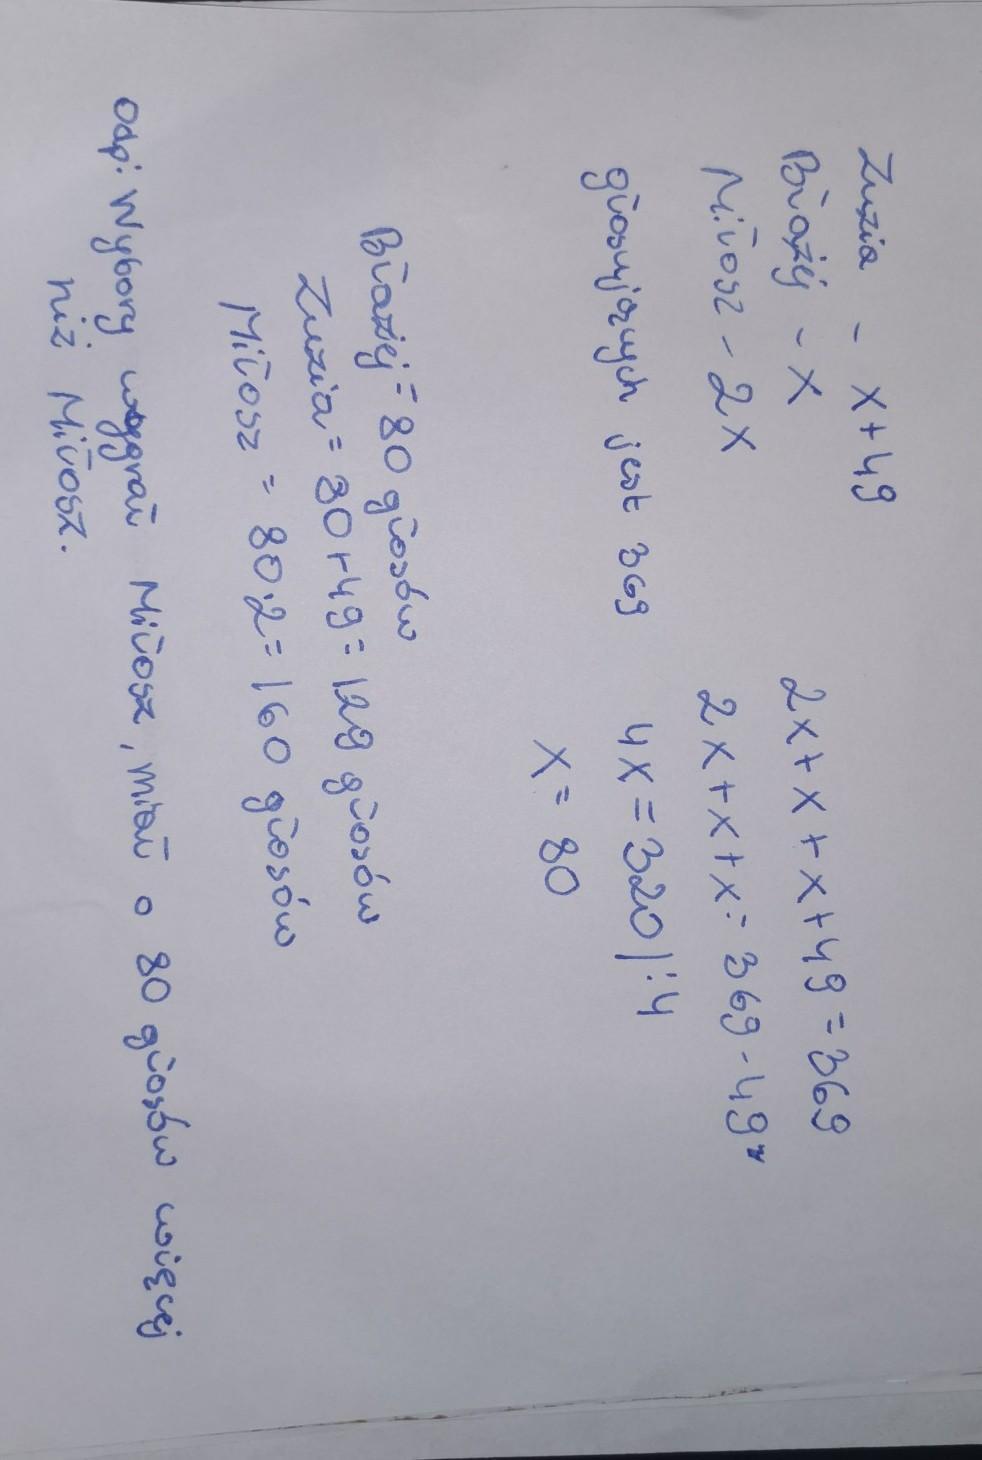 Zuzia - x+49
Błażej - x
Miłosz - 2x
głosujących jest 369
2x+x+x+49=369
2x+x+x=369-49
4x=320 |:4
x=80
Błażej=80 głosów
Zuzia=80+49=129 głosów
Miłosz=80·2=160 głosów
odp: Wybory wygrał Miłosz, miał o 80 głosów więcej
niż Miłosz.